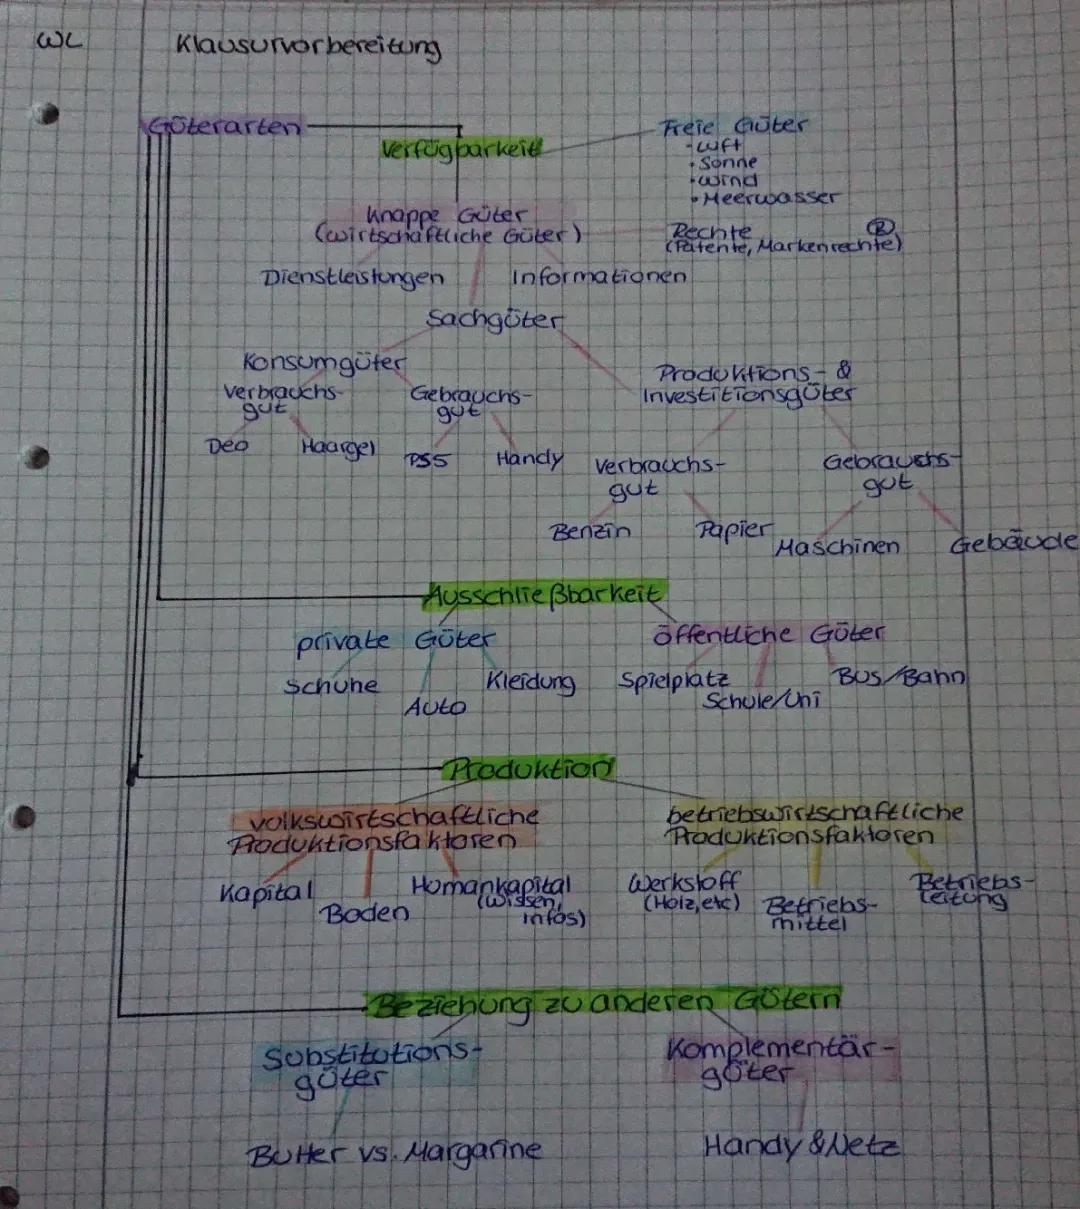 WL Klausurvorbereitung
Güterarten
Verfügbarkeit
Freie Güter
• Luft
• Sonne
• Wind
• Meerwasser
Knappe Güter
(wirtschaftliche Güter)
Rechte ®
(Patente, Markenrechte)
Dienstleistungen
Informationen
Sachgüter
Konsumgüter
Verbrauchs-
gut
Gebrauchs-
gut
Produktions- &
Investitionsgüter
Deo
Haargel
PS5
Handy
Verbrauchs-
gut
Gebrauchs-
gut
Benzin
Papier
Maschinen
Gebäude
Ausschließbarkeit
private Güter
öffentliche Güter
Schuhe
Auto
Kleidung
Spielplatz
Schule/Uni
Bus/Bahn
Produktion
volkswirtschaftliche
Produktionsfaktoren
betriebswirtschaftliche
Produktionsfaktoren
Kapital
Boden
Humankapital
(Wissen,
infos)
Werkstoff
(Holz, etc)
Betriebs-
mittel
Betriebs-
leitung
Beziehung zu anderen Gütern
Substitutions-
güter
Komplementär-
güter
Butter vs. Margarine
Handy & Netz